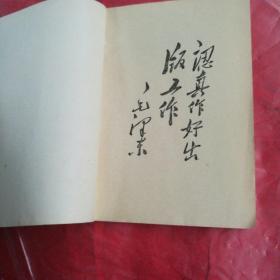 认真作好出
版工作
毛泽东